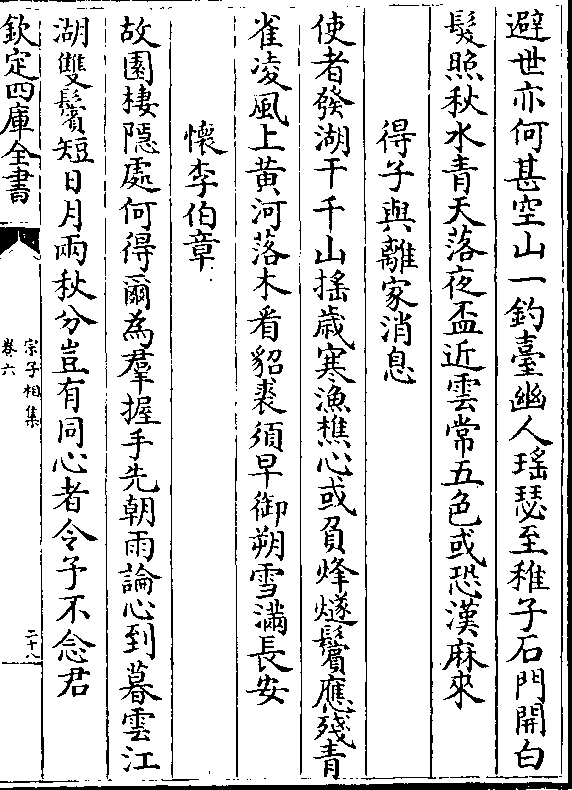 避世亦何甚空山一釣臺幽人瑤瑟至稚子石門開白
髮照秋水青天落夜盃近雲常五色或恐漢麻來
得子與離家消息
使者發湖干千山揺歳寒漁樵心或負烽燧鬢應殘青
雀凌風上黄河落木看貂裘須早御朔雪滿長安
懷李伯章
故園棲隠處何得爾為羣握手先朝雨論心到暮雲江
湖雙鬢短日月兩秋分豈有同心者令予不念君
欽定四庫全書
宗子相集
卷六
二十八